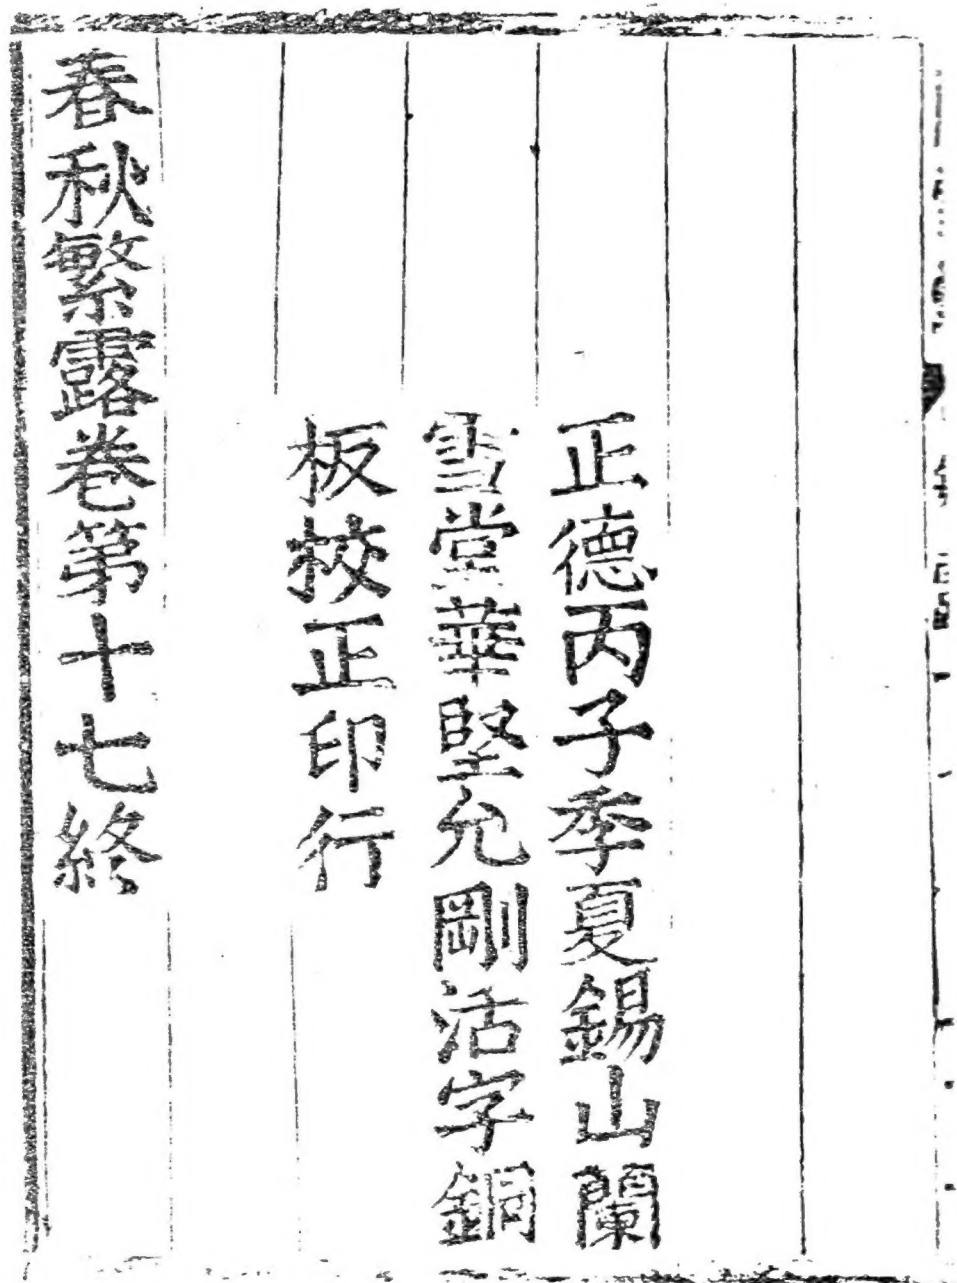 正德丙子季夏錫山蘭
雪堂華堅允剛活字銅
板校正印行
春秋繁露卷第十七終